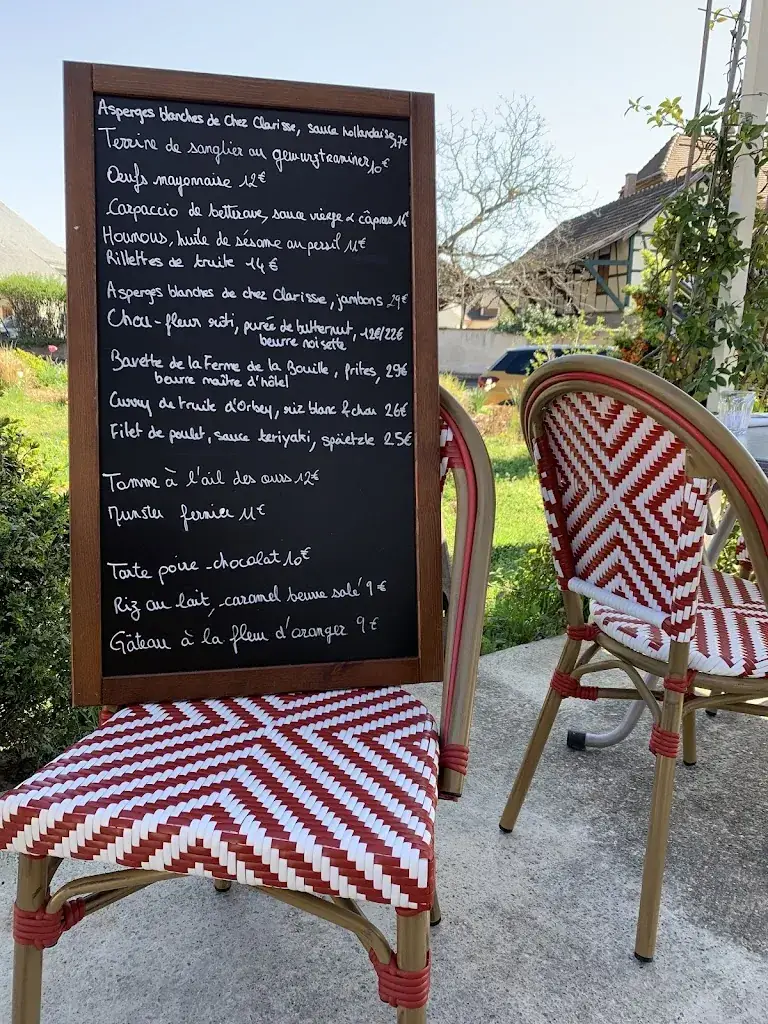 Asperges blanches de Chez Clarisse, sauce hollandaise, 17€
Terrine de sanglier au gewurztraminer 10€
Oeufs mayonnaise 12€
Carpaccio de betterave, sauce vierge & câpres 14€
Houmous, huile de sésame au persil 11€
Rillettes de truite 14€
Asperges blanches de chez Clarisse, jambons 29€
Chou-fleur rôti, purée de butternut, 12€/22€
beurre noisette
Bavette de la Ferme de la Bouille, frites, 29€
beurre maître d'hôtel
Curry de truite d'Orbey, riz blanc & chou 26€
Filet de poulet, sauce teriyaki, späetzle 25€
Tomme à l'ail des ours 12€
Munster fermier 11€
Tarte poire-chocolat 10€
Riz au lait, caramel beurre salé 9€
Gâteau à la fleur d'oranger 9€